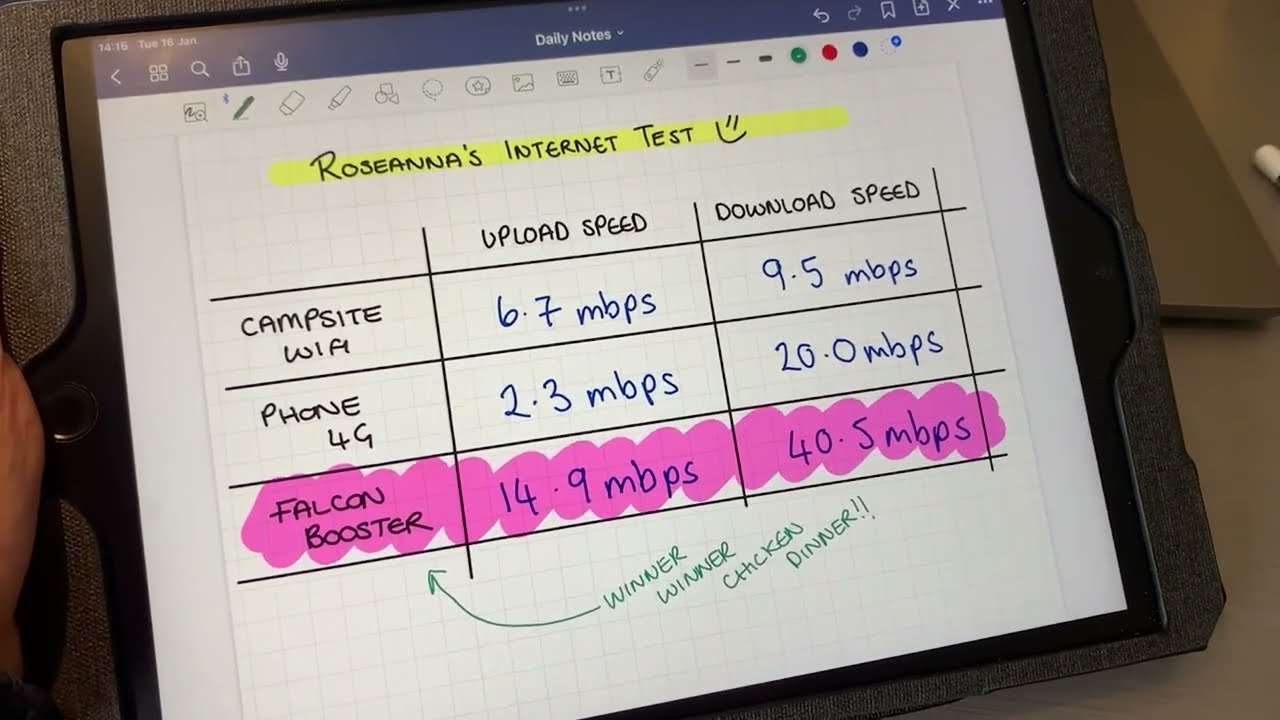 14:16 Tue 16 Jan
Daily Notes
T
ROSEANNA'S INTERNET TEST
UPLOAD SPEED
DOWNLOAD SPEED
CAMPSITE
WIFI
6.7 mbps
9.5 mbps
PHONE
4G
2.3 mbps
20.0 mbps
FALCON
BOOSTER
14.9 mbps
40.5 mbps
WINNER
WINNER
CHICKEN
DINNER!!